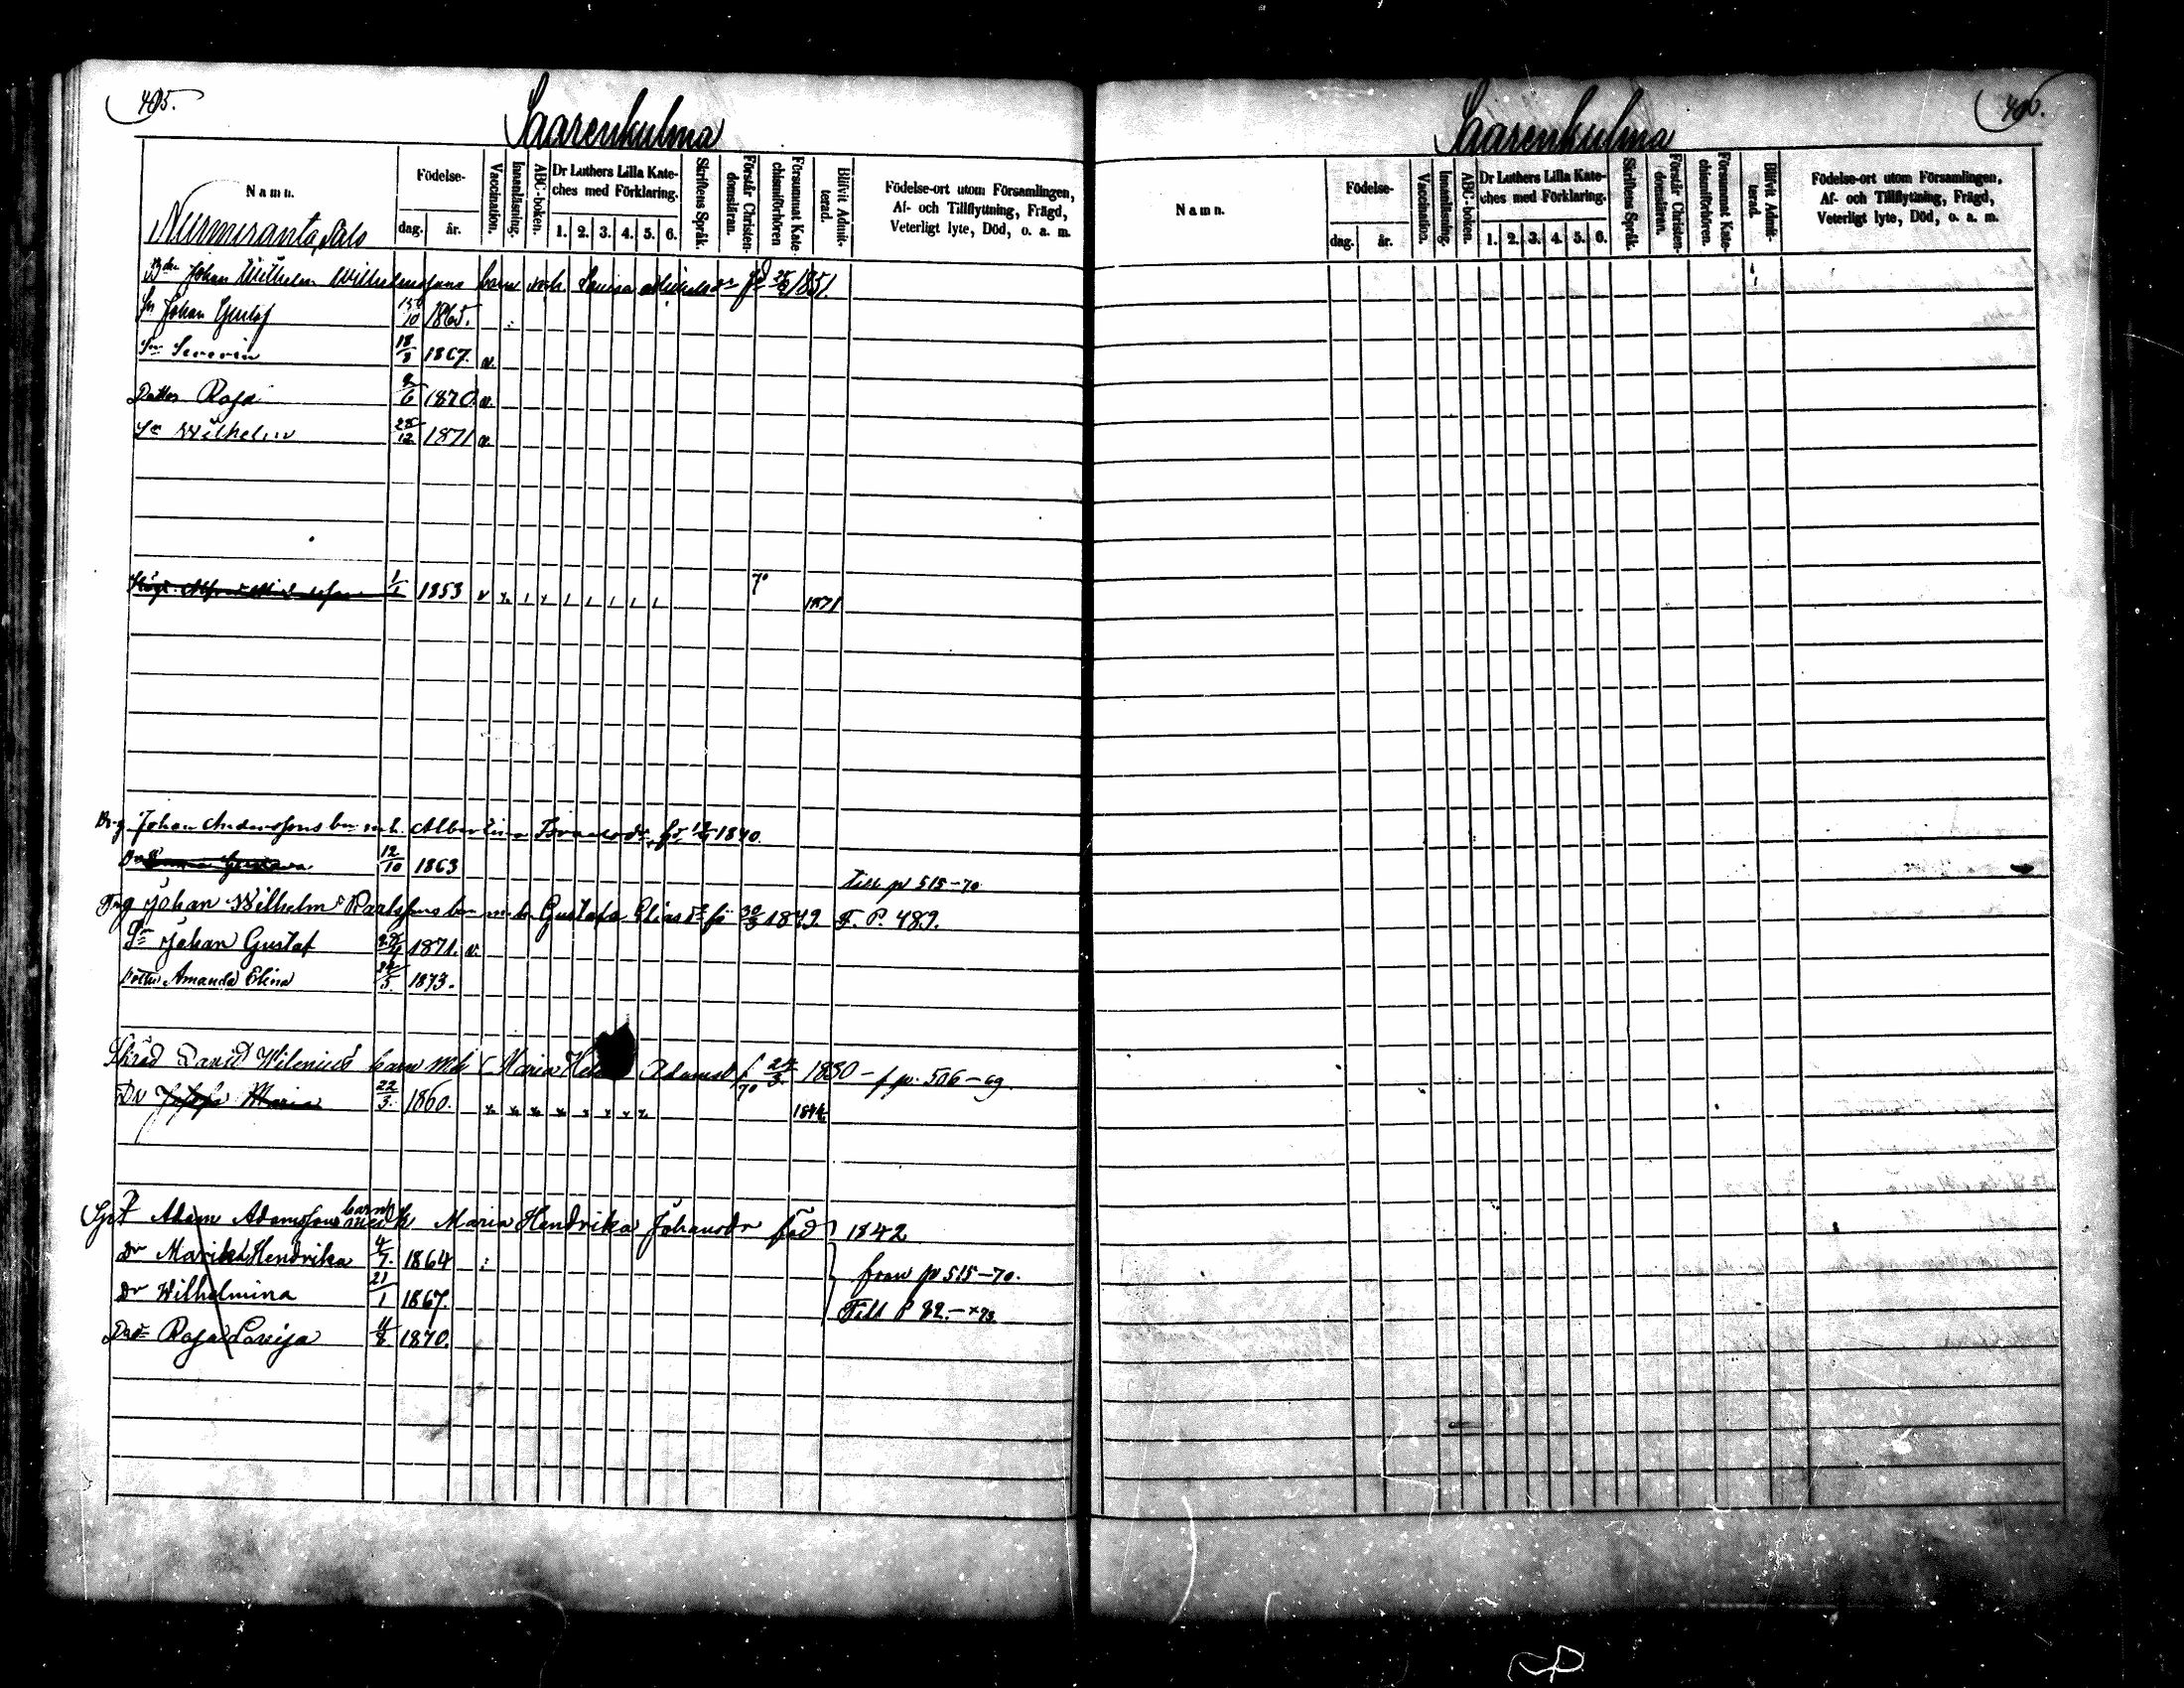 405.
Saarenkulma
Namn.
Födelse-
dag. år.
Vaccination.
Innanläsning.
ABC-boken.
Dr Luthers Lilla Kate-
ches med Förklaring.
1. 2. 3. 4. 5. 6.
Skriftens Språk.
Förstår Christen-
domsläran.
Försummat Kate-
chismiförhören
Blifvit Admit-
terad.
Födelse-ort utom Församlingen,
Af- och Tillflyttning, Frägd,
Veterligt lyte, Död, o. a. m.
Nurmiranta, Salo
Johan Wilhelm Wilhelmssons barn m. h. Lovisa 1851.
Sn Johan Gustaf 15/10 1865.
Sn Severin 18/8 1867. v.
Dotter Rosa 8/6 1870. v.
Sn Wilhelm 28/12 1871 v.
1/1 1853 70 1871
Johan Anderssons bn m. h. Albertina 1840.
Dr Gustava 12/10 1863 till p 515-70
Johan Wilhelm Karlssons bn m. h. Gustafa Eliasdr fö 30/3 1849. F. P. 489.
Sn Johan Gustaf 1871. v.
Dotter Amanda Elina 1873.
Skräd David Wilenius barn mh Maria Adamsd f 24/3 1830 - f p. 506-69
Dr Josefa Maria 22/3 1860. 70
Adam Adamssons barn med h Maria Hendrika Johansdr född 1842
Dr Maria Hendrika 4/7. 1864 från p 515-70.
Dr Wilhelmina 21/1 1867. Till P 82.-73.
Rosa Lovisa 11/8 1870.
406.
Saarenkulma
Namn.
Födelse-
dag. år.
Vaccination.
Innanläsning.
ABC-boken.
Dr Luthers Lilla Kate-
ches med Förklaring.
1. 2. 3. 4. 5. 6.
Skriftens Språk.
Förstår Christen-
domsläran.
Försummat Kate-
chismiförhören.
Blifvit Admit-
terad.
Födelse-ort utom Församlingen,
Af- och Tillflyttning, Frägd,
Veterligt lyte, Död, o. a. m.